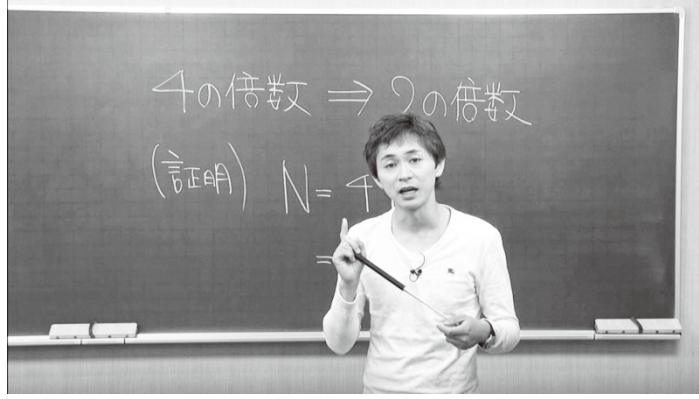 4の倍数 ⇒ 2の倍数
(証明) N = 4
=